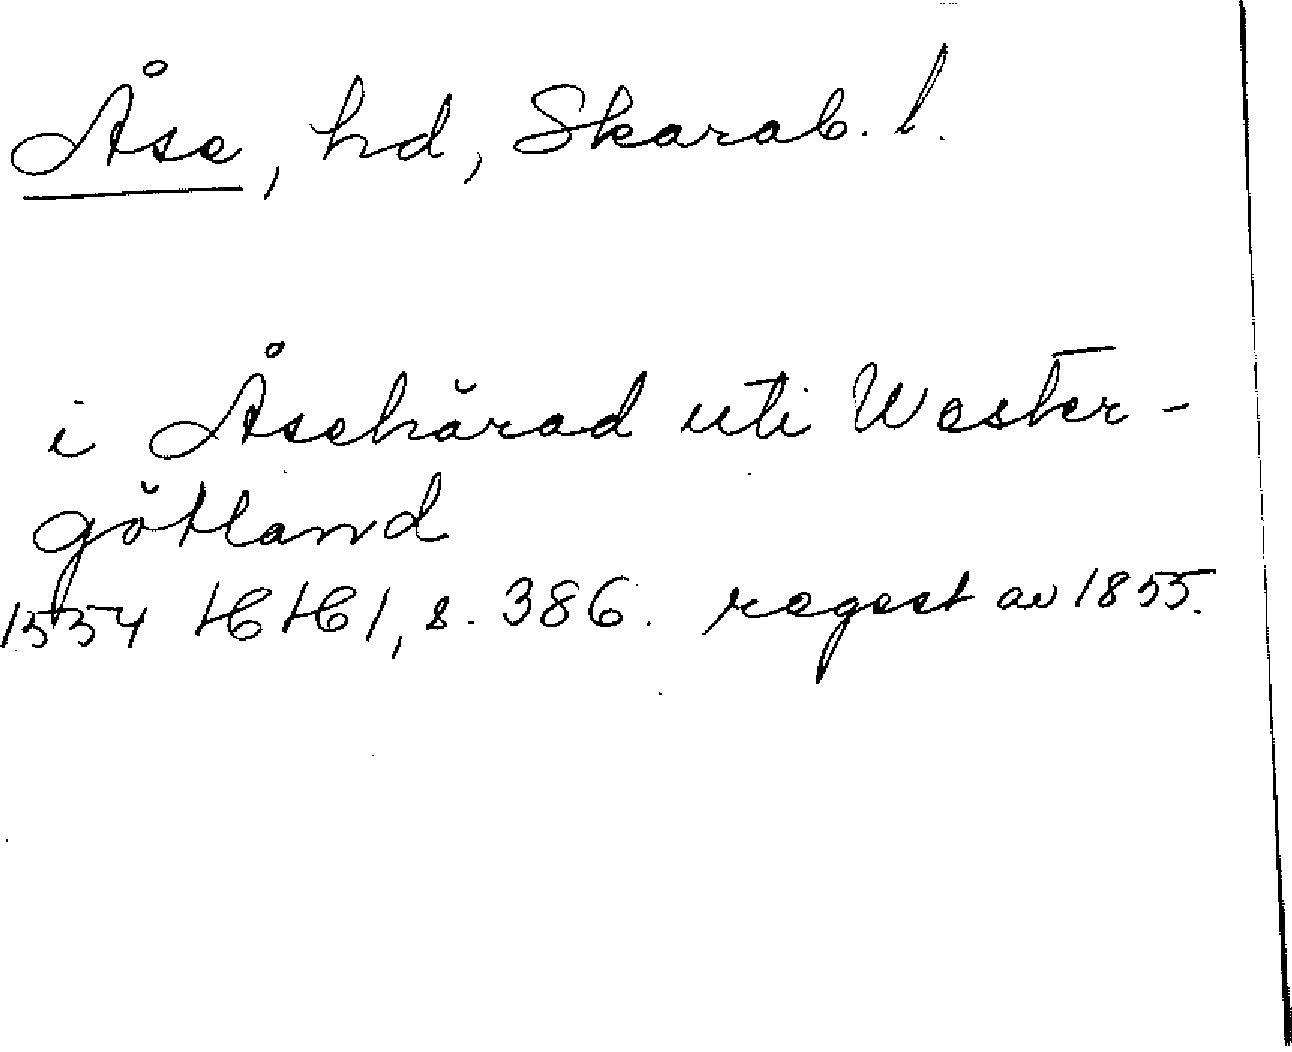 Åse, hd, Skarab. l.
i Åsehärad uti Wester-
götland
1554 HH 1, s. 386. regest av 1855.